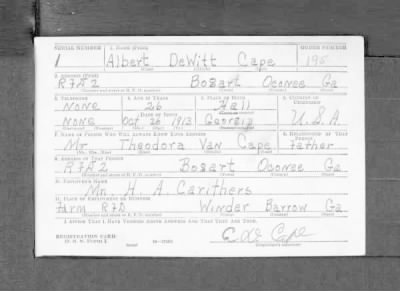 SERIAL NUMBER 1. NAME (Print) ORDER NUMBER
1 Albert DeWitt Cape 195
(First) (Middle) (Last)
2. ADDRESS (Print)
RFD 2 Bogart Oconee Ga
3. TELEPHONE 4. AGE IN YEARS 5. PLACE OF BIRTH 6. COUNTRY OF CITIZENSHIP
NONE 26 Hall
DATE OF BIRTH
NONE Oct 26 1913 Georgia U.S.A
7. NAME OF PERSON WHO WILL ALWAYS KNOW YOUR ADDRESS 8. RELATIONSHIP OF THAT PERSON
Mr Theodora Van Cape Father
(Mr., Mrs., Miss) (First) (Middle) (Last)
9. ADDRESS OF THAT PERSON
RFD 2 Bogart Oconee Ga
10. EMPLOYER'S NAME
Mr. H. A. Carithers
11. PLACE OF EMPLOYMENT OR BUSINESS
Farm RFD Winder Barrow Ga
I AFFIRM THAT I HAVE VERIFIED ABOVE ANSWERS AND THAT THEY ARE TRUE.
REGISTRATION CARD
D. S. S. Form 1 (over)